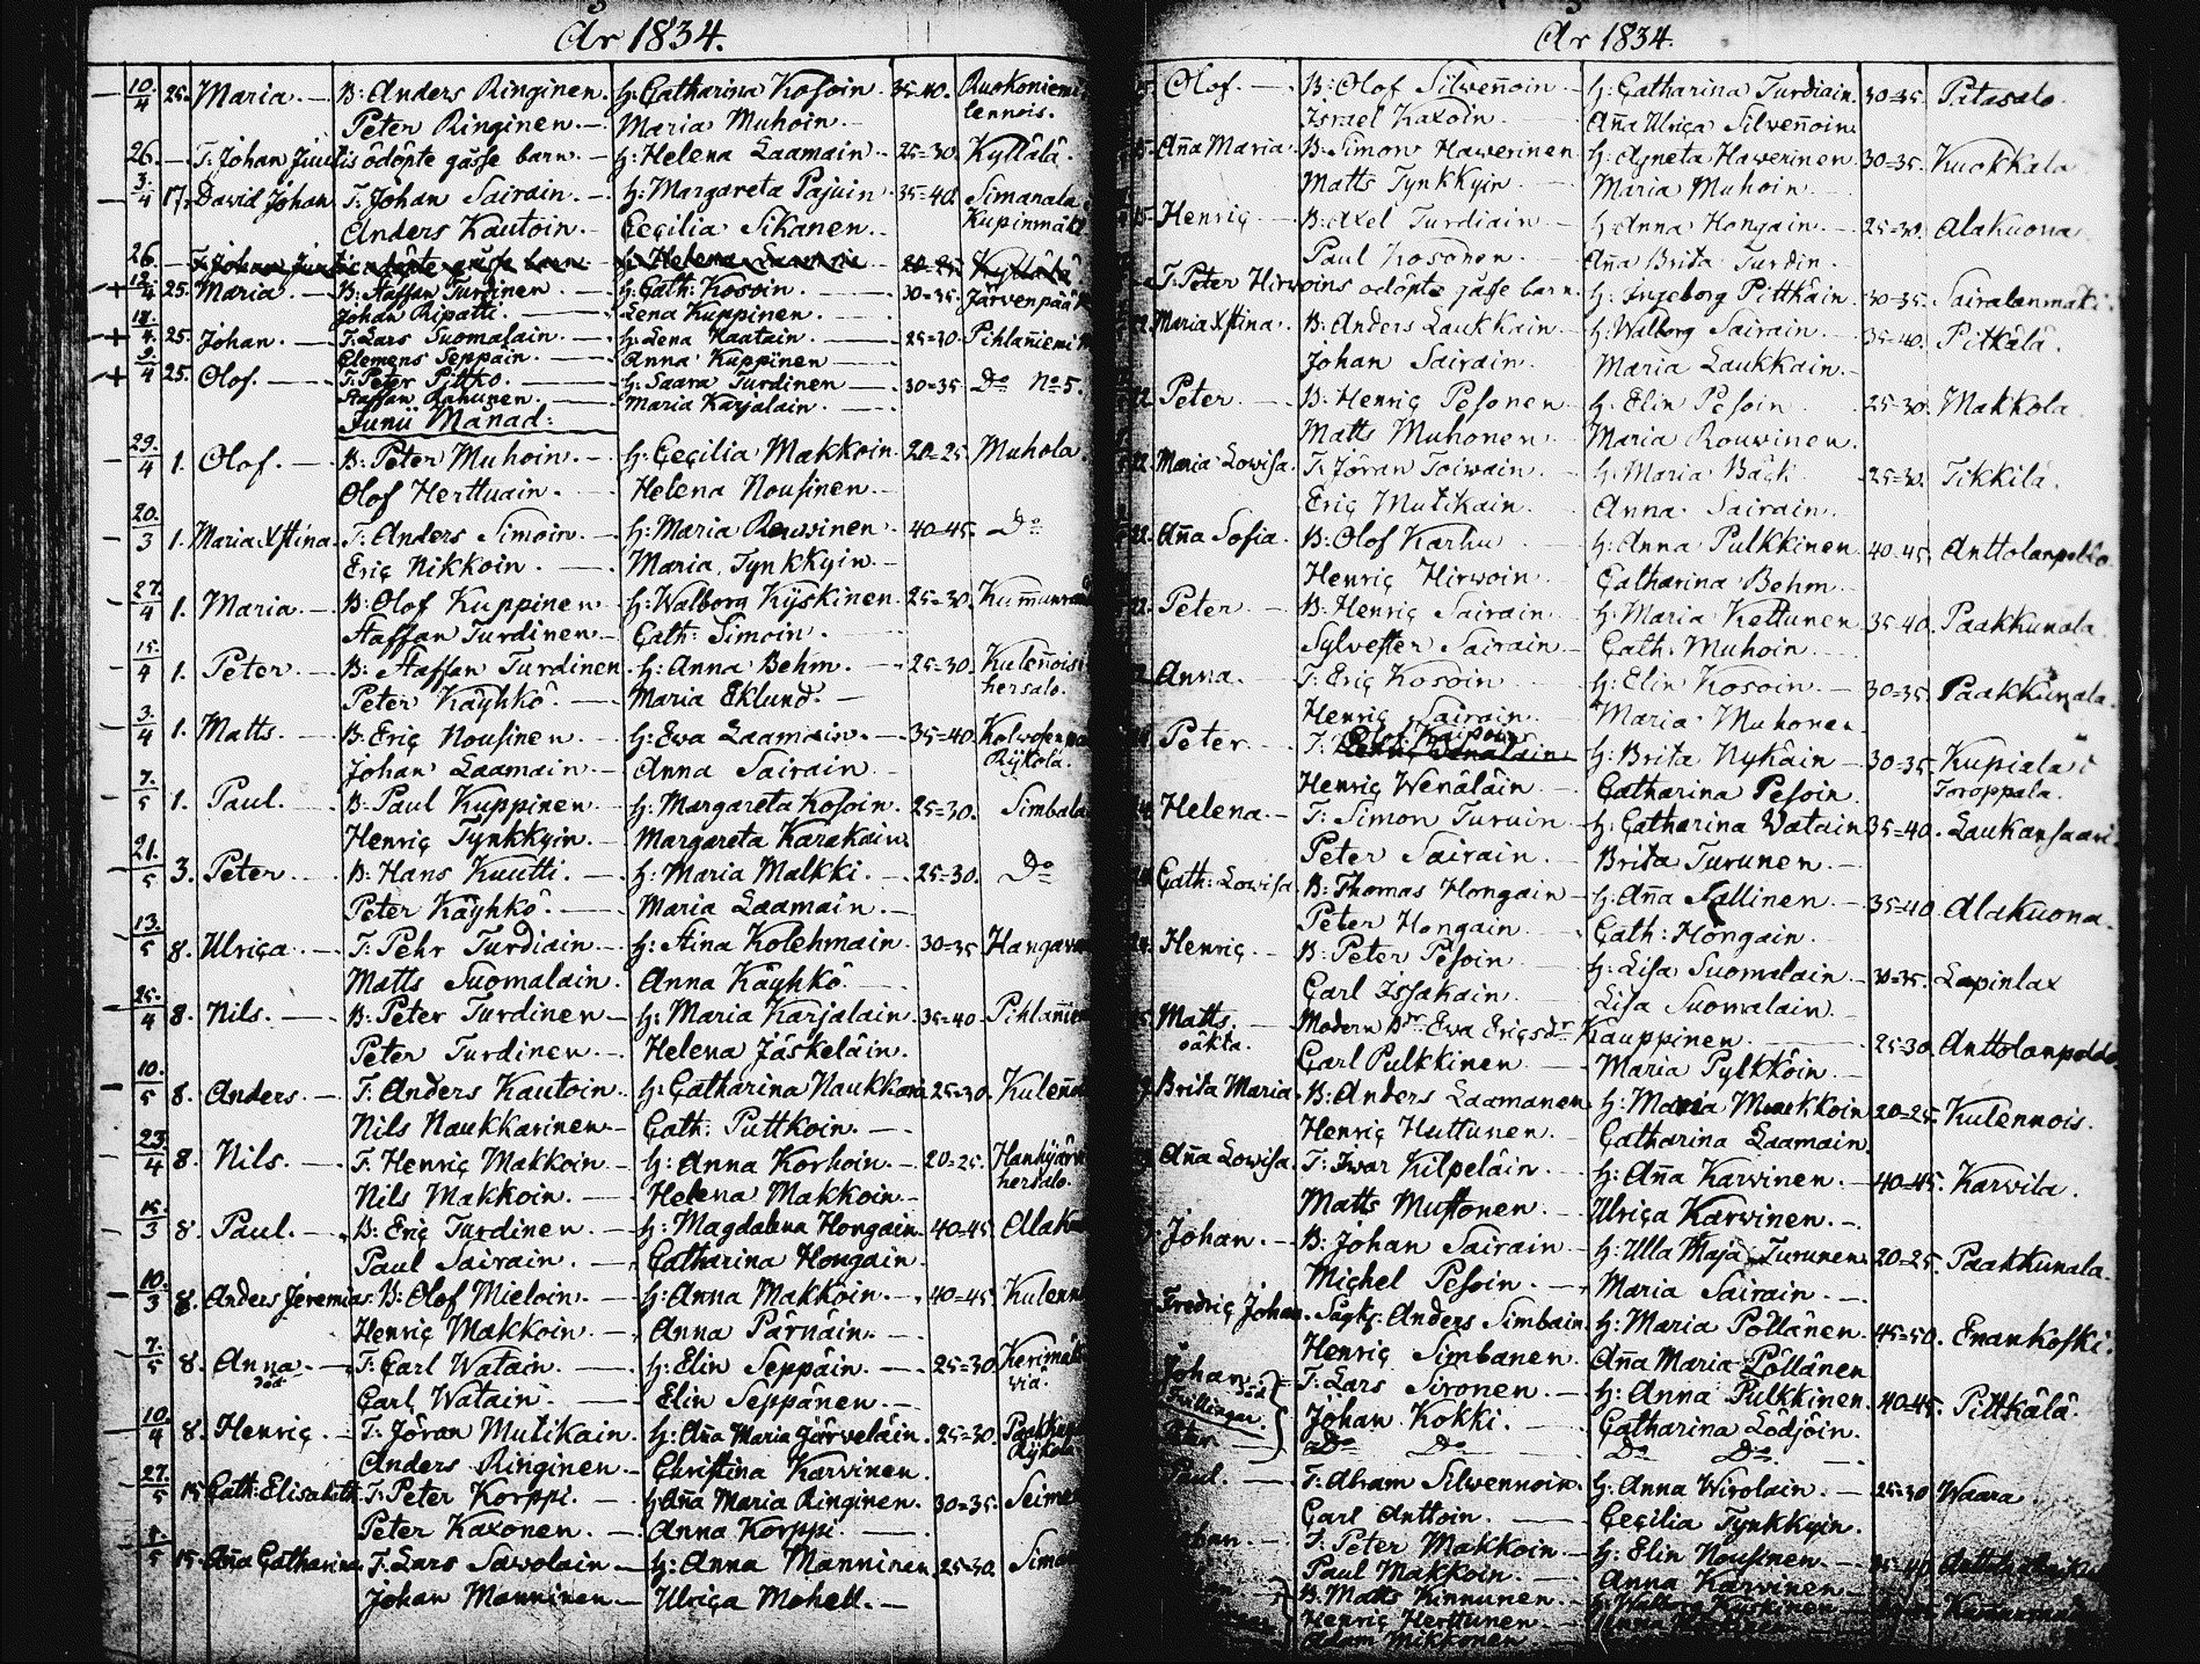 År 1834.
10/4 25. Maria. — B: Anders Ringinen. H: Catharina Kosoin. 35-40. Ruokoniemi
Peter Ringinen. — Maria Muhoin. — lennois.
26. — T: Johan Juutis ödöpte gåsse barn. — H: Helena Laamain. 25=30. Kyllälä.
3/4 17. David Johan T: Johan Sairain. — H: Margareta Pajuin. 35=40. Simanala
Anders Kautoin. — Cecilia Sikanen. — Kupinmäki
26. — T: Johan Juutis odöpte gåsse barn H: Helena Laamain 20=25 Kyllälä
12/4 25. Maria. — B: Staffan Turdinen. — H: Cath: Kosoin. — 30=35. Järvenpää
Johan Ripatti. — Lena Kuppinen. —
18/4 25. Johan. — T: Lars Suomalain. — H: Lena Kaatain. — 25=30. Pihlañiemi
Clemens Seppäin. — Anna Kuppinen —
9/4 25. Olof. — T: Peter Pittko. — H: Saara Turdinen — 30=35. Do No 5.
Staffan Rahunen. — Maria Karjalain. —
Junii Månad:
29/4 1. Olof. — B: Peter Muhoin. — H: Cecilia Makkoin. 20=25. Muhola.
Olof Herttuain. — Helena Nousinen. —
20/3 1. Maria Xstina. T: Anders Simoin. — H: Maria Rouvinen. 40=45. Do
Eric Nikkoin. — Maria Tynkkyin. —
27/4 1. Maria. — B: Olof Kuppinen H: Walborg Kyskinen. 25=30.
Staffan Turdinen — Cath: Simoin.
15/4 1. Peter. — B: Staffan Turdinen. H: Anna Behm. — 25=30. Kuleñois
Peter Käyhkö. — Maria Eklund. — hersalo.
3/4 1. Matts. — B: Eric Nousinen. — H: Ewa Laamain. — 35=40.
Johan Laamain. — Anna Sairain. — Rykölä.
7/5 1. Paul. — B: Paul Kuppinen. — H: Margareta Kosoin. 25=30. Simbala
Henric Tynkkyin. — Margareta Karakain.
21/5 3. Peter. — B: Hans Kuutti. — H: Maria Malkki. — 25=30. Do
Peter Käyhkö. — Maria Laamain. —
13/5 8. Ulrica. — T: Pehr Turdiain. — H: Stina Kolehmain. 30=35
Matts Suomalain. Anna Käyhkö. —
25/4 8. Nils. — B: Peter Turdinen — H: Maria Karjalain. 35=40
Peter Turdinen. — Helena Jäskeläin.
10/5 8. Anders. — T: Anders Kautoin. H: Catharina Naukkarin 25=30.
Nils Naukkarinen. — Cath: Puttkoin. —
23/4 8. Nils. — T: Henric Makkoin — H: Anna Korhoin. — 20=25.
Nils Makkoin. — Helena Makkoin. — hersalo.
15/3 8. Paul. — B: Eric Turdinen. — H: Magdalena Hongain. 40=45
Paul Sairain. — Catharina Hongain.
10/3 8. Anders Jeremias. B: Olof Mieloin. — H: Anna Makkoin. — 40=45
Henric Makkoin. — Anna Pärnäin. —
7/5 8. Anna. — T: Carl Watain. — H: Elin Seppäin. — 25=30 Kerimäki
död Carl Watain. — Elin Seppänen. —
10/4 8. Henric. — T: Jöran Mutikain. H: Aña Maria Järveläin. 25=30.
Anders Ringinen. — Christina Karvinen.
27/5 15. Cath: Elisabeth. T: Peter Korppi. — H: Aña Maria Ringinen. 30=35.
Peter Kaxonen. — Anna Korppi. —
1/5 15. Aña Catharina T: Lars Sawolain — H: Anna Manninen. 25=30.
Johan Manninen. — Ulrica Mohell. —
År 1834.
Olof. — B: Olof Silweñoin — H: Catharina Turdiain. 30=35. Patasalo.
Israel Kaxoin. — Aña Ulrica Silweñoin.
15. Aña Maria. B: Simon Hawerinen H: Agneta Hawerinen. 30=35. Kuokkala
Matts Tynkkyin. — Maria Muhoin. —
15. Henric — B: Axel Turdiain — H: Anna Hongain. — 25=30. Alakuona
Paul Kosonen. — Aña Brita Turdin. —
T: Peter Hirwoins odöpte gåsse barn. H: Ingeborg Pittkäin. 30=35. Sairalanmäki.
Maria Xstina. B: Anders Laukkain. — H: Walborg Sairain. — 35=40. Pitkälä.
Johan Sairain. Maria Laukkain. —
22. Peter. — B: Henric Pesonen H: Elin Pesoin. 25=30. Makkola
Matts Muhonen. — Maria Rouwinen.
22. Maria Lowisa. T: Jöran Toiwain. — H: Maria Bäck 25=30. Tikkilä.
Eric Mutikain. — Anna Sairain. —
22. Aña Sofia. B: Olof Karhu — H: Anna Pulkkinen 40=45. Anttolanpelto
Henric Hirwoin. Catharina Behm. —
22. Peter. — B: Henric Sairain — H: Maria Kettunen 35=40. Paakkunala
Sylvester Sairain — Cath: Muhoin. —
Anna. — T: Eric Kosoin — H: Elin Kosoin. — 30=35. Paakkunala.
Henric Sairain. — Maria Muhonen
Peter. — T: Olof Kaipoin H: Brita Nykäin — 30=35. Kupiala
Henric Wenäläin. Catharina Pesoin. Toroppala.
Helena. — T: Simon Turuin — H: Catharina Watain 35=40. Laukansaari
Peter Sairain. — Brita Turunen. —
Cath: Lowisa. B: Thomas Hongain — H: Aña Sallinen. — 35=40 Alakuona.
Peter Hongain. Cath: Hongain.
Henric. — B: Peter Pesoin — H: Lisa Suomalain. — 30=35. Lapinlax
Carl Issakain. Lisa Suomalain. —
Matts. — Modern Br Ewa Ericsdr Kauppinen. — 25=30. Anttolanpelto
oäkta. Carl Pulkkinen — Maria Pylkköin. —
Brita Maria. B: Anders Laamanen H: Maria Muukkoin 20=25. Kulennois.
Henric Huttunen. — Catharina Laamain.
Aña Lowisa. T: Iwar Kilpeläin. — H: Aña Karvinen. — 40=45. Karvila.
Matts Mustonen. — Ulrica Karwinen. —
Johan. — B: Johan Sairain — H: Ulla Maja Turunen 20=25. Paakkunala.
Michel Pesoin. — Maria Sairain. —
Fredric Johan. Anders Simbain. H: Maria Pöllänen. 45=50. Enankoski.
Henric Simbanen. Aña Maria Pöllänen
Johan död T: Lars Sironen. — H: Anna Pulkkinen. 40=45. Pittkälä.
Trillingar. Johan Kokki. — Catharina Lödjöin.
Do Do Do Do —
Paul. — T: Abram Silwennoin. H: Anna Wirolain. — 25=30 Waara.
Carl Anttoin. — Cecilia Tynkkyin.
T: Peter Makkoin. — H: Elin Nousinen. — 35=40
Paul Makkoin. — Anna Karvinen —
B: Matts Kinnunen. — H: Walborg Kyskinen
Henric Herttunen. —
Adam Mikkonen